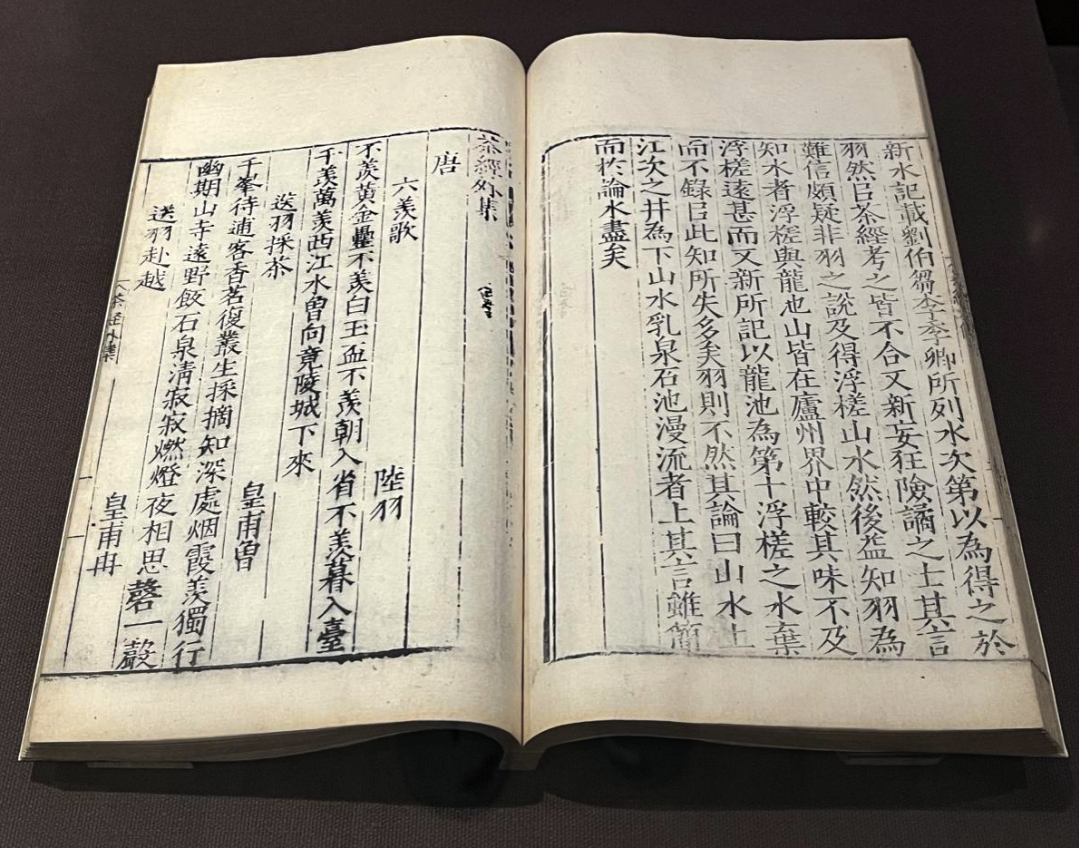 新水記載劉伯芻李季卿所列水次第以為得之於
羽然㠯茶經考之皆不合又新妄狂險譎之士其言
難信頗疑非羽之說及得浮槎山水然後益知羽為
知水者浮槎與龍池山皆在廬州界中較其味不及
浮槎遠甚而又新所記以龍池為第十浮槎之水棄
而不錄㠯此知所失多矣羽則不然其論曰山水上
江次之井為下山水乳泉石池漫流者上其言雖簡
而於論水盡矣
茶經外集
唐
六羨歌 陸羽
不羨黃金罍不羨白玉盃不羨朝入省不羨暮入臺
千羨萬羨西江水曾向竟陵城下來
送羽採茶 皇甫曾
千峯待逋客香茗復叢生採摘知深處烟霞羨獨行
幽期山寺遠野飯石泉清寂寂燃燈夜相思磬一聲
送羽赴越 皇甫冉
茶經外集